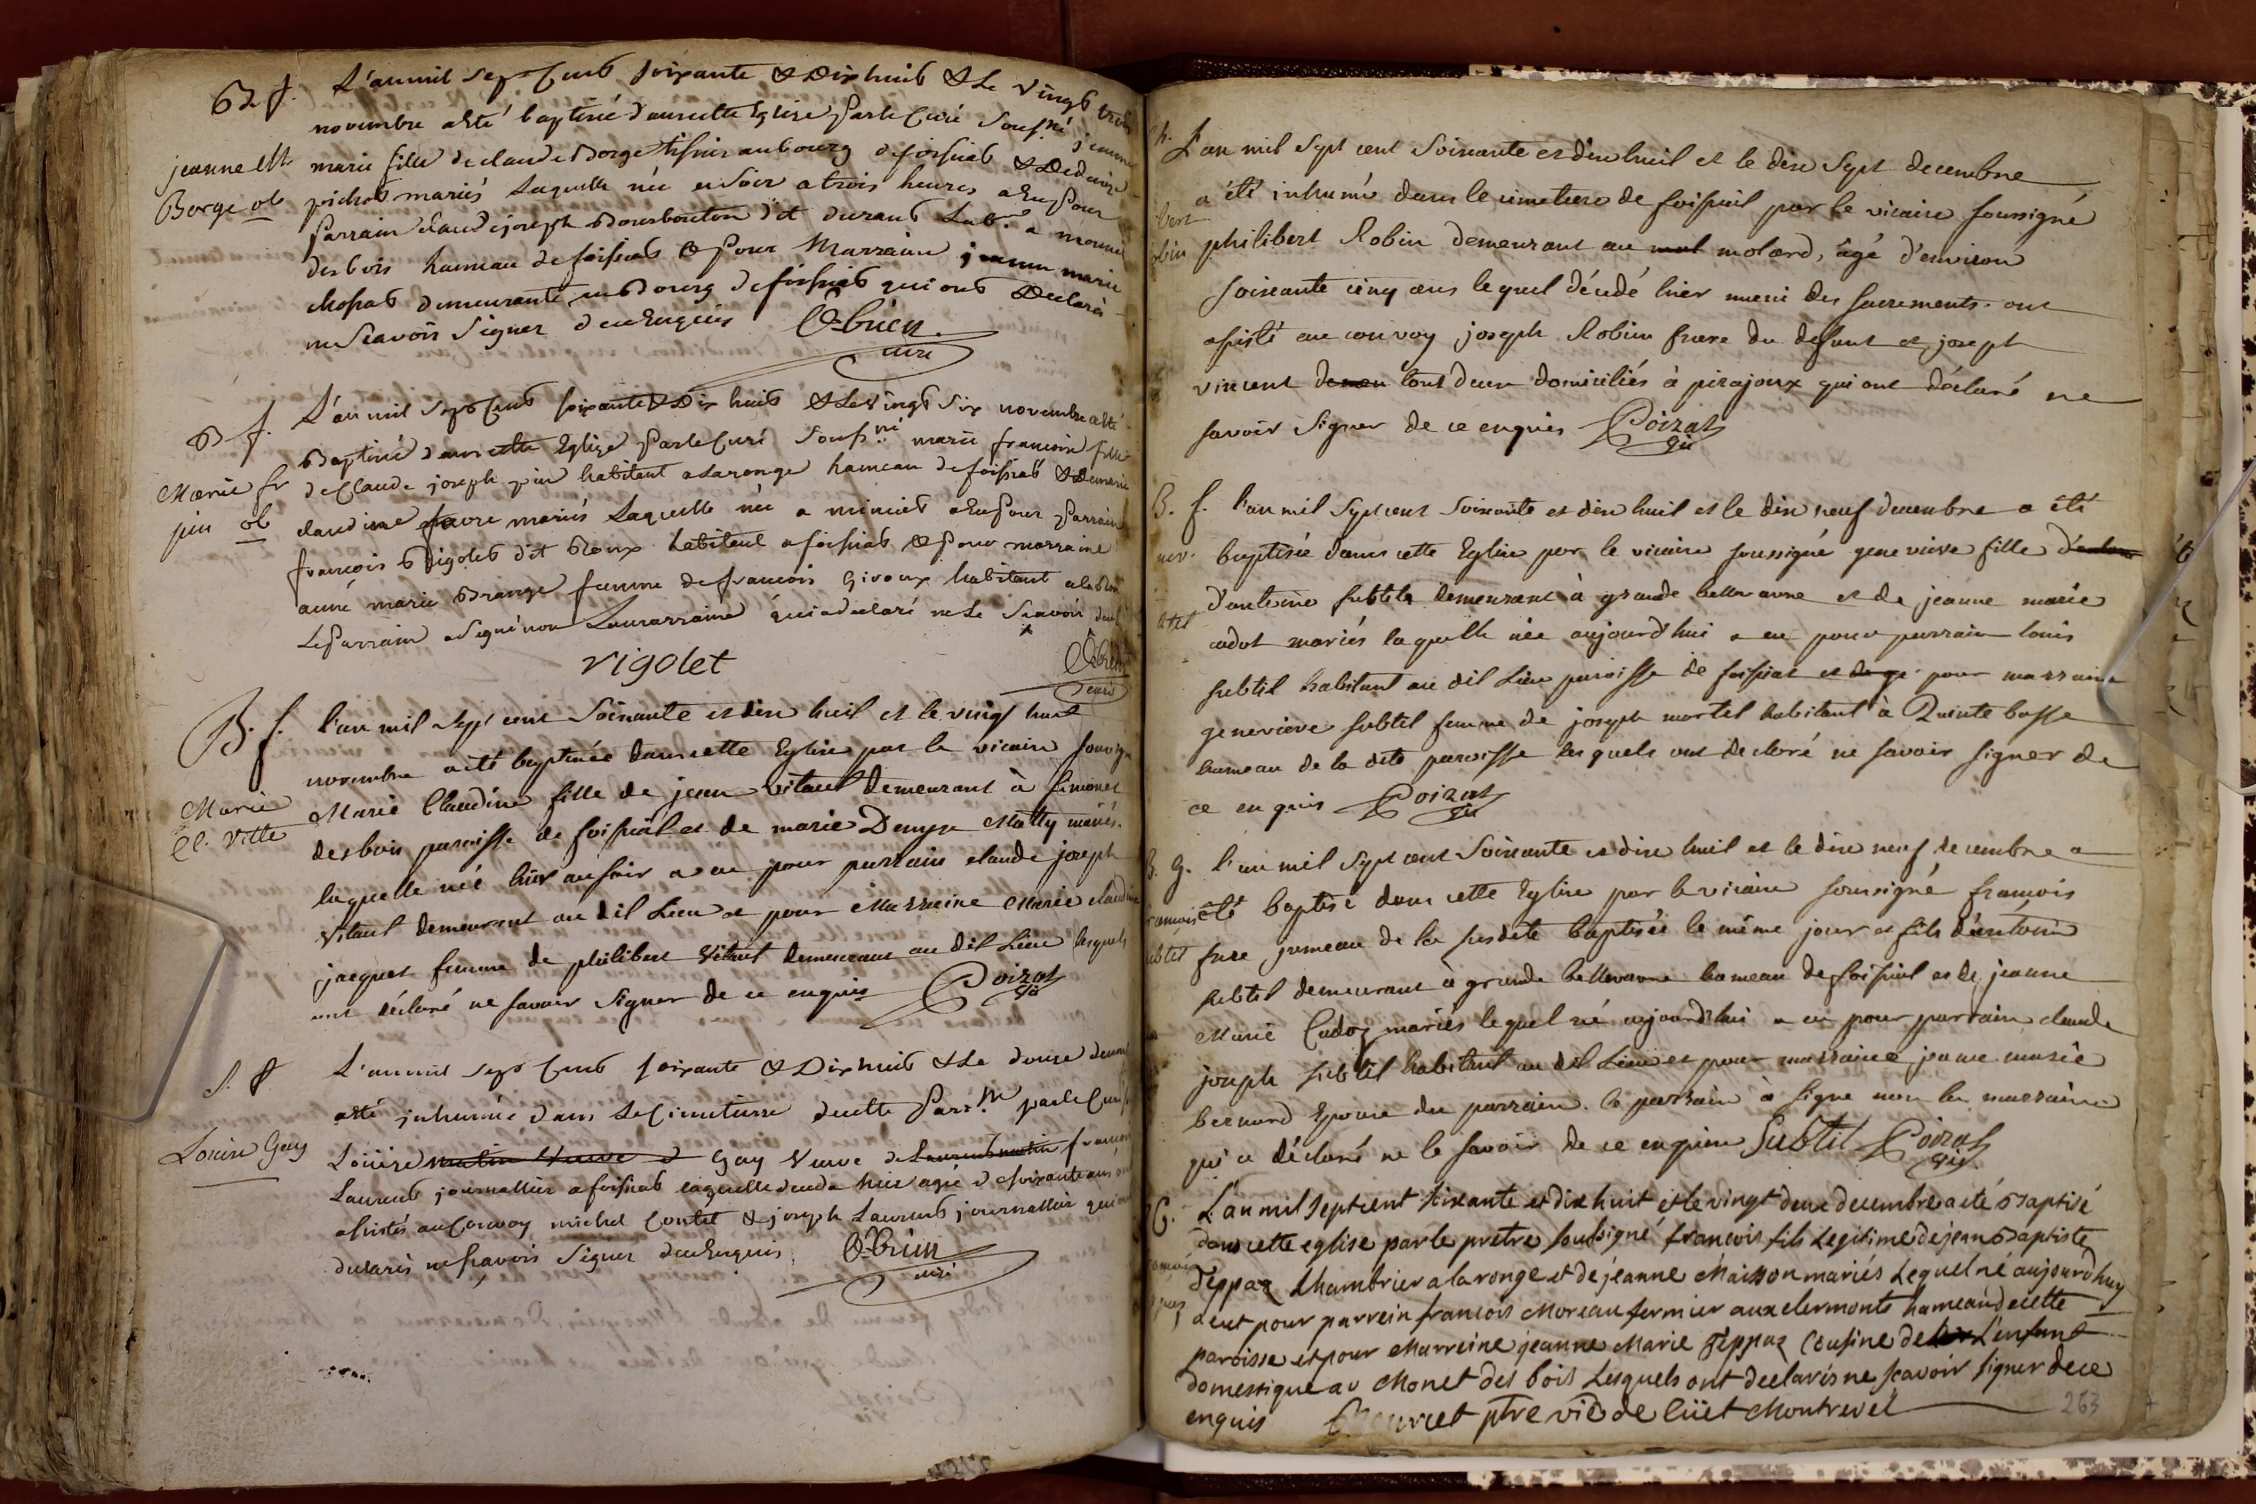 B. f. L'an mil sept Cent soixante & Dix huit & Le vingt trois
novembre a Eté baptisé dans cette Eglise Par le Curé sous.né jeanne
jeanne M.
Borge ob
marie fille de claude Borge tissier au bourg de foissiat & De denise
pichod mariés Laquelle née ce soir a trois heures a Eu Pour
Parrain claude joseph Bourbouton dit durand Lab.r a monet
des bois hameau de foissiat & Pour Marraine jeanne marie
chossat demeurante au Bourg de foissiat qui ont Déclaré
ne Scavoir Signer deceEnquis O-brien
curé
B f. L'an mil sept Cent soixante & Dix huit & Le vingt Six novembre a Eté
Baptisée dans cette Eglise Par le Curé Sous.né marie francoise fille
Marie fr
pin ob
de Claude joseph pin habitant a Laronge hameau de foissiat & De marie
claudine favre mariés Laquelle née a minuit a Eu Pour Parrain
francois Rigolet dit Roux habitant a foissiat & Pour marraine
anné marie Brange femme de francois Giroux habitant a la
Le Parrain a Signé non La marraine qui a declaré ne Le Scavoir
rigolet
O-brien
curé
B. f. l'an mil sept cent Soixante et dix huit et le vingt huit
novembre a été baptisée dans cette Eglise par le vicaire soussigné
Marie
Cl. Vitte
Marie Claudine fille de jean vitaut demeurant à simonet
des bois paroisse de foissiat et de marie Denyse Matty mariés.
laquelle née hier au soir a eu pour parrain claude joseph
vitaut demeurant au dit Lieu et pour Marraine Marie claudine
jacquet femme de philibert vitaut demeurant au dit Lieu lesquels
ont déclaré ne savoir signer de ce enquis Poizat
vic
S. f L'an mil sept Cent soixante & Dix huit & Le douze
a Eté inhumée dans Le Cimetierre de cette Parr.sse par le Curé
Louise Gay
Loüise matin Veuve d Gay Veuve de Laurent matin francois
Laurent journallier a foissiat laquelle deceda hier agée de soixante ans
assistés au Convoy michel Contet & joseph Laurent journallier qui ont
declarés ne scavoir Signer deceEnquis, O-brien
curé
h. L'an mil sept cent Soixante et dix huit et le dix sept decembre
a été inhumé dans le cimetiere de foissiat par le vicaire soussigné
bert
obin
philibert Robin demeurant au mol molard, âgé d'environ
soixante cinq ans lequel décédé hier muni des sacrements. ont
assisté au convoy joseph Robin frere du defunt et joseph
vincent demeu tout deux domiciliés à pirajoux qui ont déclaré ne
savoir signer de ce enquis Poizat
vic
B. f. l'an mil sept cent Soixante et dix huit et le dix neuf decembre a été
nev.
btil
baptisée dans cette Eglise par le vicaire soussigné genevieve fille d'antoi
d'antoine subtil demeurant à grande bellevavre et de jeanne marie
cadot mariés laquelle née aujourd'hui a eu pour parrain louis
subtil habitant au dit Lieu paroisse de foissiat et de ge pour marraine
genevieve subtil femme de joseph mortel habitant à Quinte basse
hameau de la dite paroisse lesquels ont déclaré ne savoir signer de
ce enquis Poizat
vic
B. g. l'an mil sept cent Soixante et dix huit et le dix neuf decembre a
rancois
ubtil
été baptisé dans cette Eglise par le vicaire soussigné francois
frere jumeau de la susdite baptisée le même jour et fils d'antoine
subtil demeurant à grande bellevavre hameau de foissiat et de jeanne
Marie Cadoz mariés lequel né aujourd'hui a eu pour parrain claude
joseph subtil habitant au dit Lieu et pour marraine jeanne marie
bernard Epouse du parrain. le parrain a signé non la marraine
qui a déclaré ne le savoir de ce enquise Subtil Poizat
vic
G. L'an mil sept cent soixante et dix huit et le vingt deux decembre a eté Baptisé
dans cette eglise par le pretre soussigné francois fils Legitime de jean Baptiste
Teppaz Chambrier a la ronge et de jeanne Maisson mariés Lequel né aujourd'huy
a eut pour parrein francois Moreau fermier aux clermonts hameau de cette
paroisse et pour Marreine jeanne Marie Teppaz Cousine de L'enfant
domestique au Monet des bois Lesquels ont declarés ne scavoir signer de ce
enquis ptre vic de Cüet Montrevel
263